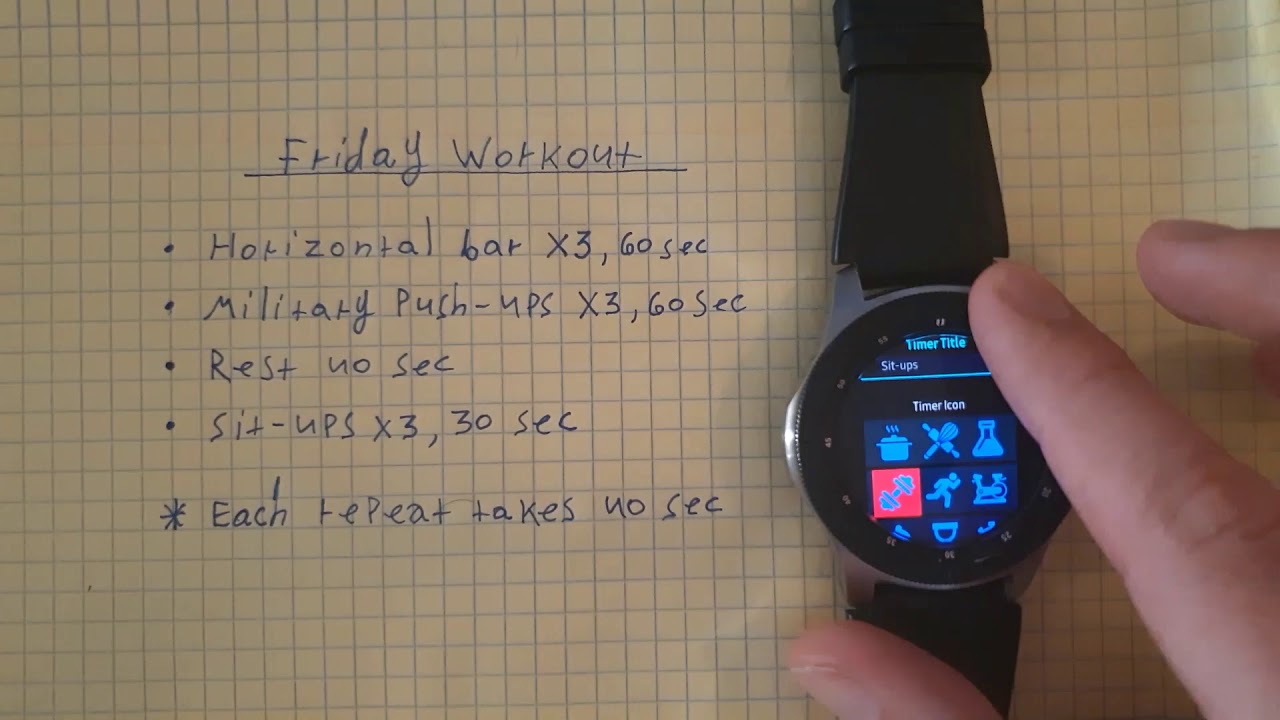 Friday Workout
• Horizontal bar X3, 60sec
• Military Push-ups X3, 60sec
• Rest 40 sec
• Sit-ups X3, 30 sec
* Each repeat takes 40 sec
Timer Title
Sit-ups
Timer Icon
55
45
35
30
25